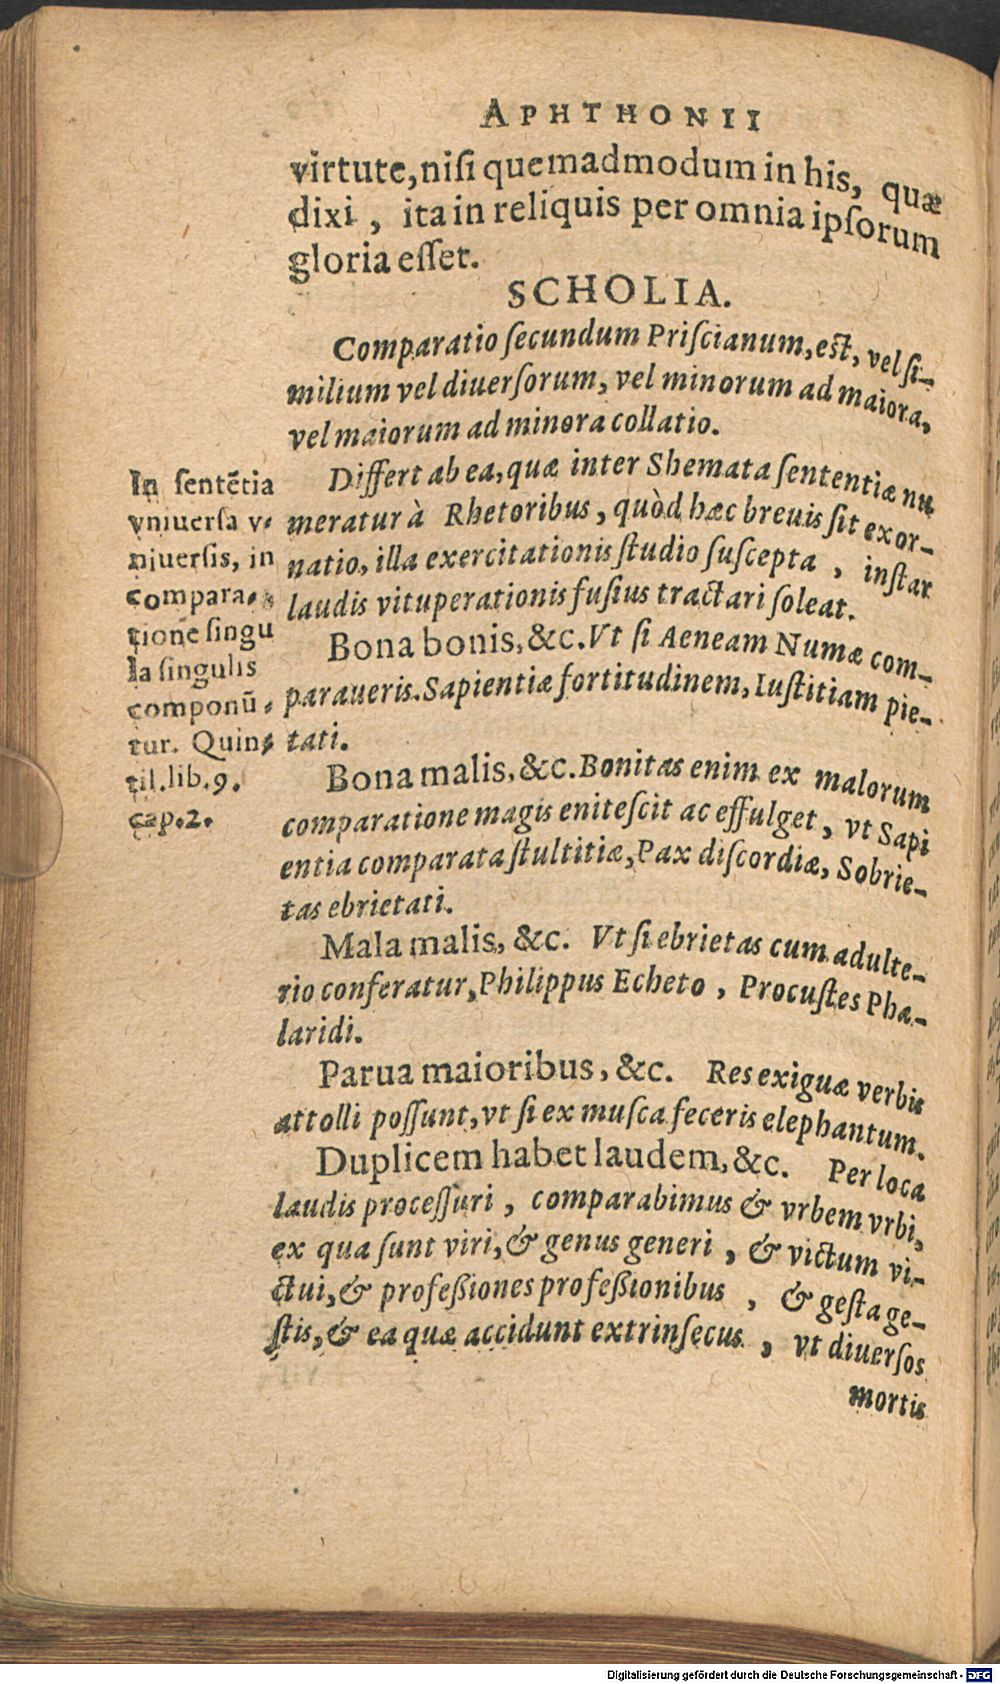 APHTHONII
virtute, niſi quemadmodum in his, quæ
dixi, ita in reliquis per omnia ipſorum
gloria eſſet.
SCHOLIA.
Comparatio ſecundum Priſcianum, eſt, vel ſi-
milium vel diuerſorum, vel minorum ad maiora,
vel maiorum ad minora collatio.
Differt ab ea, quæ inter Shemata ſententiæ nu
meratur à Rhetoribus, quòd hæc breuis ſit exor-
natio, illa exercitationis ſtudio ſuſcepta, inſtar
laudis vituperationis fuſius tractari ſoleat.
In ſentẽtia
vniuerſa v-
niuerſis, in
compara-
tione ſingu
la ſingulis
componũ-
tur. Quin-
til. lib. 9.
cap. 2.
Bona bonis, &c. Vt ſi Aeneam Numæ com-
paraueris. Sapientiæ fortitudinem, Iuſtitiam pie-
tati.
Bona malis, &c. Bonitas enim ex malorum
comparatione magis eniteſcit ac effulget, vt Sapi
entia comparata ſtultitiæ, Pax diſcordiæ, Sobrie-
tas ebrietati.
Mala malis, &c. Vt ſi ebrietas cum adulte-
rio conferatur, Philippus Echeto, Procuſtes Phæ-
laridi.
Parua maioribus, &c. Res exiguæ verbis
attolli poſſunt, vt ſi ex muſca feceris elephantum.
Duplicem habet laudem, &c. Per loca
laudis proceſſuri, comparabimus & vrbem vrbi,
ex qua ſunt viri, & genus generi, & victum vi-
ctui, & profeßiones profeßionibus, & geſta ge-
ſtis, & ea quæ accidunt extrinſecus, vt diuerſos
mortis
Digitalisierung gefördert durch die Deutsche Forschungsgemeinschaft - DFG